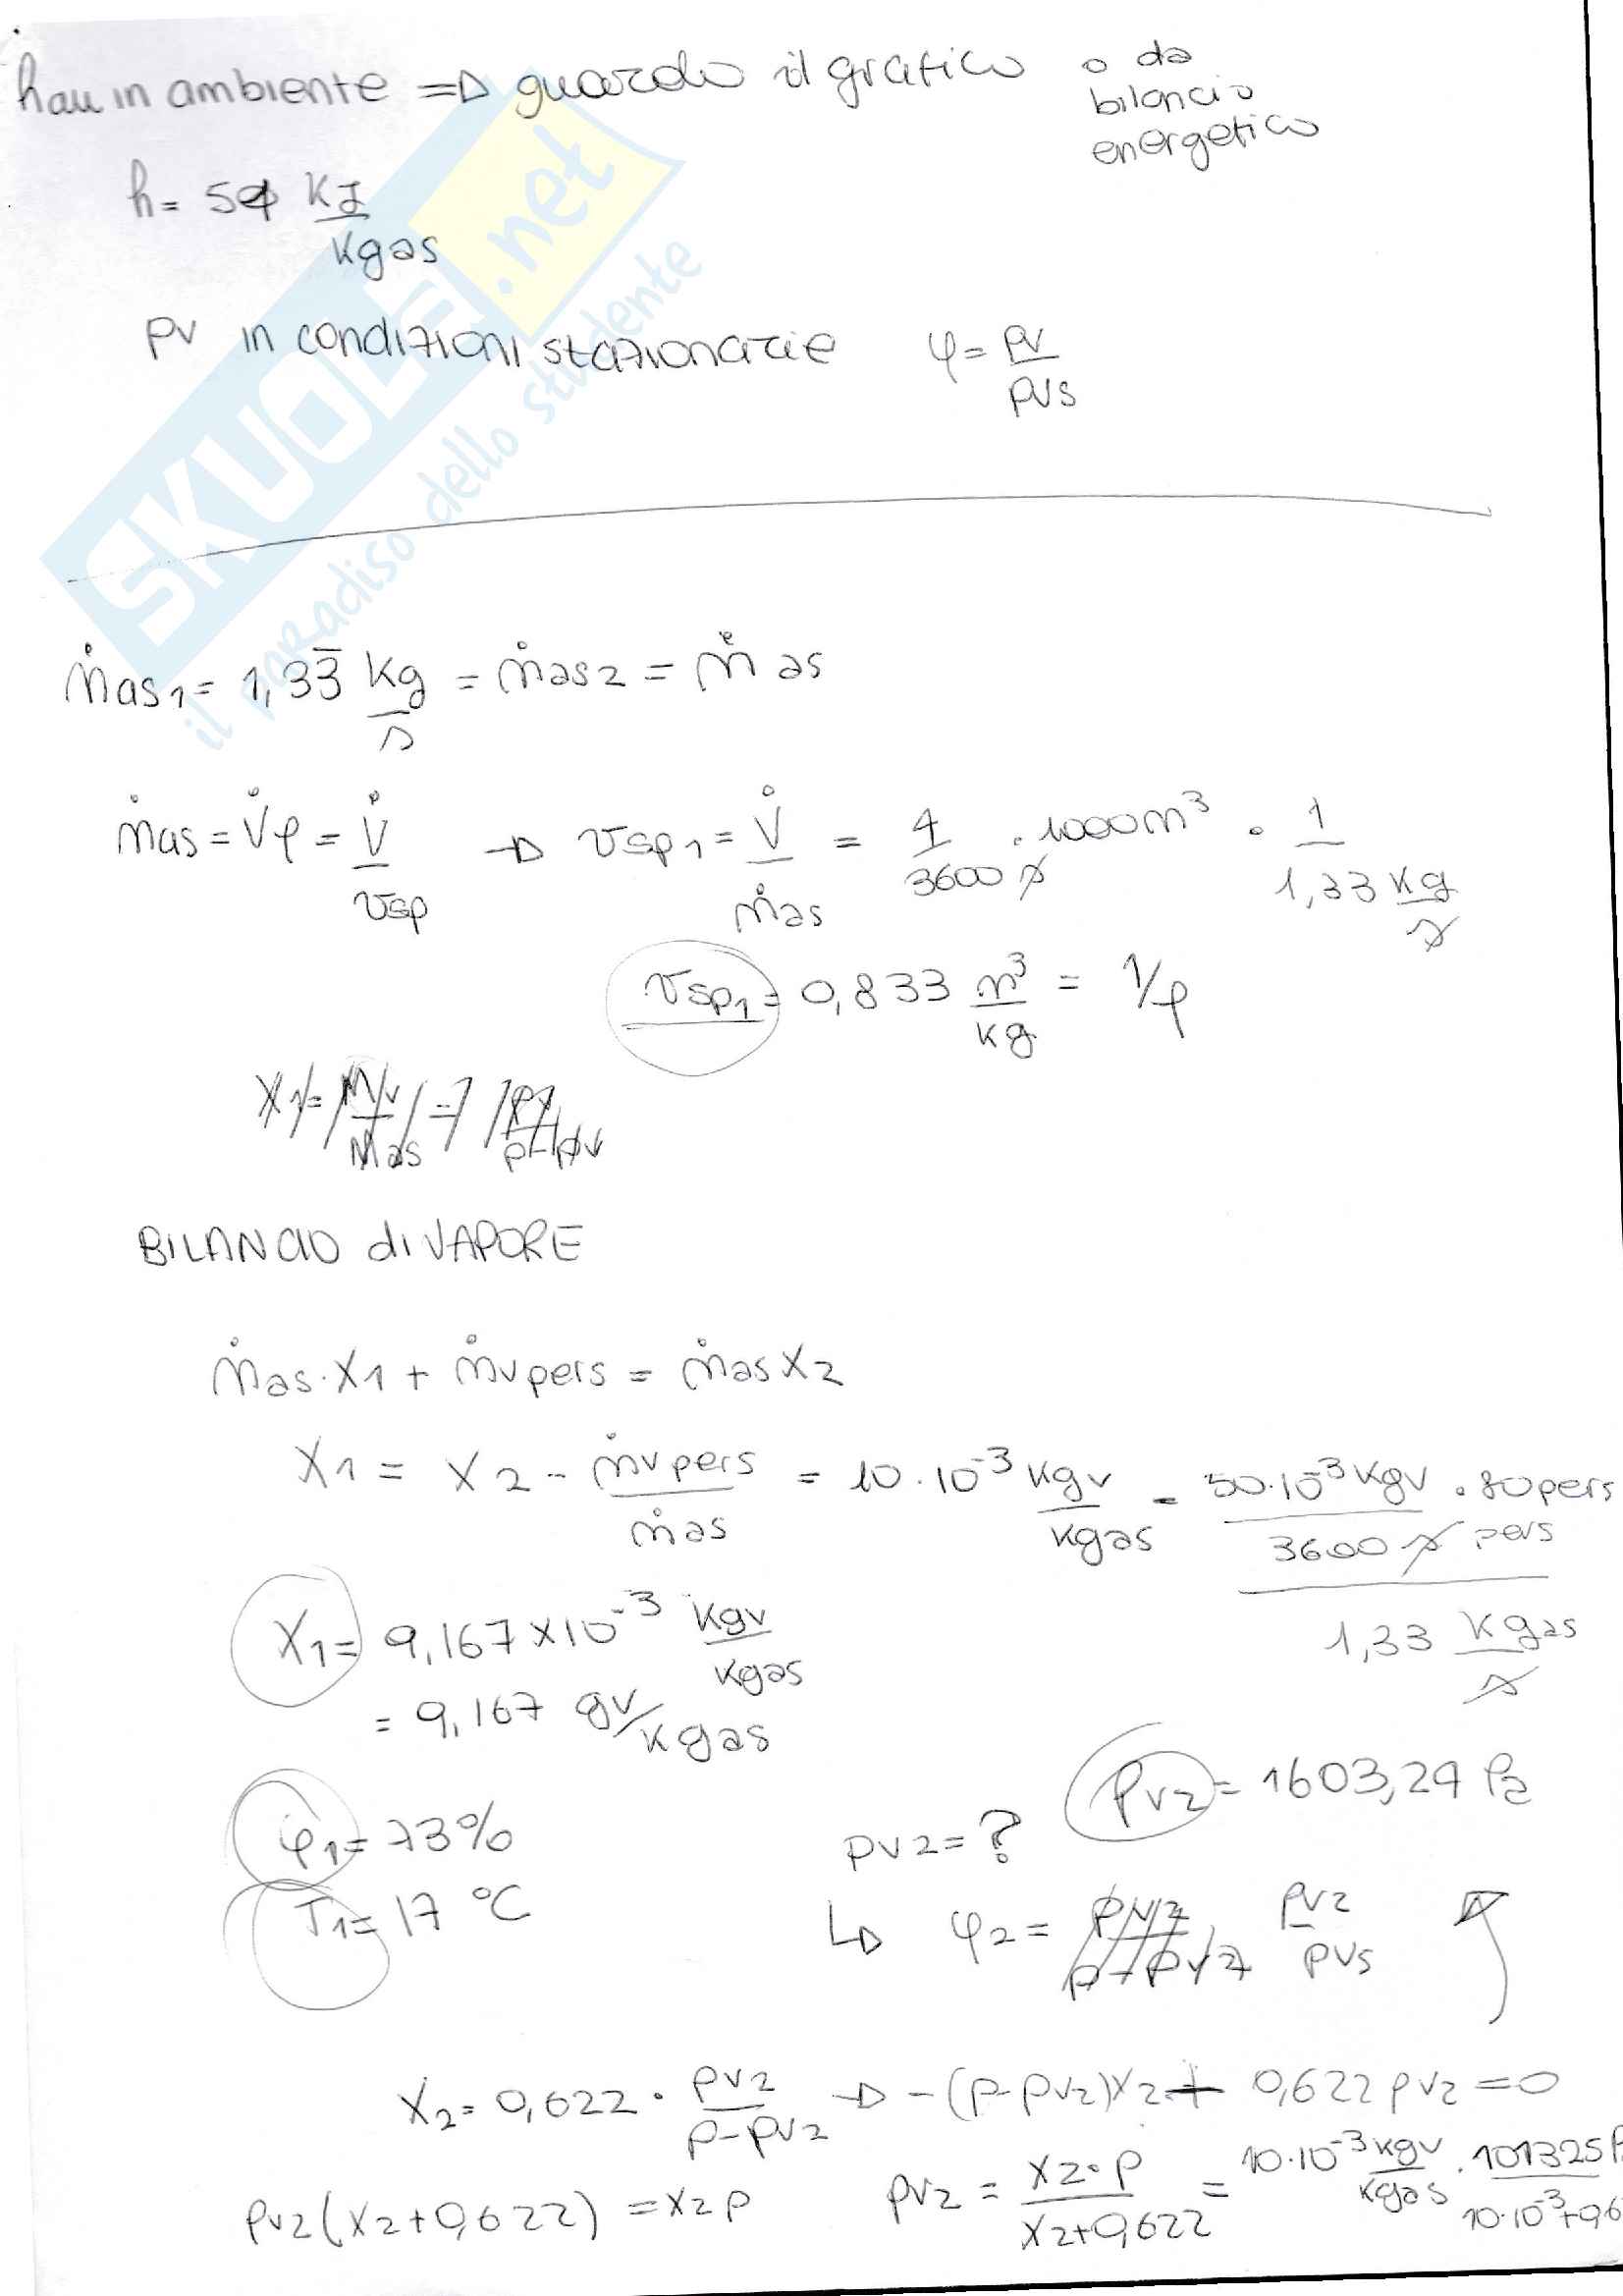 hau in ambiente => guardo il grafico o da
bilancio
energetico
h = 54 KJ/Kgas
pv in condizioni stazionarie φ = pv/pvs
SKUOLA.net
il paradiso dello studente
ṁas1 = 1,33̅ Kg/s = ṁas2 = ṁas
ṁas = V̇ρ = V̇/vsp → vsp1 = V̇/ṁas = 4/3600 s · 1000 m³ · 1/1,33 kg/s
vsp1 = 0,833 m³/kg = 1/ρ
X1 = Mv/Mas = pv/p-pv
BILANCIO di VAPORE
ṁas·X1 + ṁvpers = ṁas X2
X1 = X2 - ṁvpers/ṁas = 10·10⁻³ kgv/kgas - 50·10⁻³ kgv/3600 s pers · 80 pers / 1,33 kgas/s
X1 = 9,167 x 10⁻³ kgv/kgas
= 9,167 gv/kgas
pv2 = 1603,29 Pa
φ1 = 73% pv2 = ?
T1 = 17 °C ↳ φ2 = pv2/p-pv2 pv2/pvs
X2 = 0,622 · pv2/p-pv2 → -(p-pv2)X2 + 0,622 pv2 = 0
pv2(X2+0,622) = X2 p pv2 = X2·p/X2+0,622 = 10·10⁻³ kgv/kgas · 101325 P/10·10⁻³+0,6